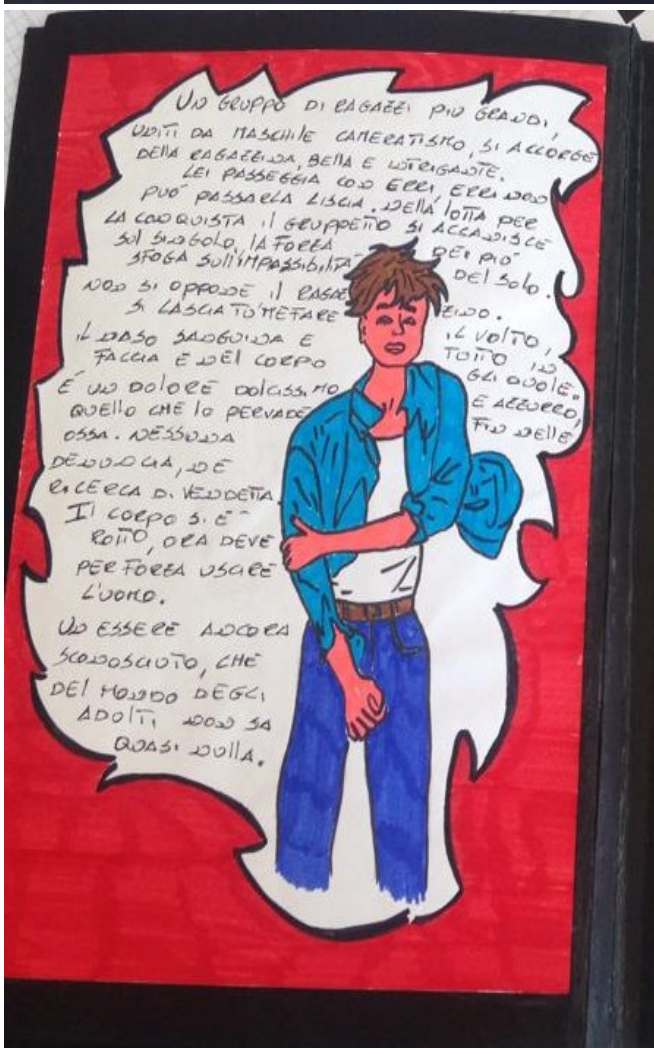 UN GRUPPO DI RAGAZZI PIÙ GRANDI,
UNITI DA MASCHILE CAMERATISMO, SI ACCORGE
DELLA RAGAZZINA, BELLA E INTRIGANTE.
LEI PASSEGGIA CON ERRI, ERRI NON
PUÒ PASSARLA LISCIA. NELLA LOTTA PER
LA CONQUISTA IL GRUPPETTO SI ACCANISCE
SUL SINGOLO, LA FORZA DEI PIÙ
SFOGA SULL'IMPASSIBILITÀ DEL SOLO.
NON SI OPPONE IL RAGAZZINO.
SI LASCIA TUMEFARE IL VOLTO,
IL NASO SANGUINA E TUTTO IN
FACCIA E NEL CORPO GLI DUOLE.
È UN DOLORE DOLCISSIMO E AZZURRO,
QUELLO CHE LO PERVADE FIN NELLE
OSSA. NESSUNA
DENUNCIA, NÉ
RICERCA DI VENDETTA.
IL CORPO SI È
ROTTO, ORA DEVE
PER FORZA USCIRE
L'UOMO.
UN ESSERE ANCORA
SCONOSCIUTO, CHE
DEL MONDO DEGLI
ADULTI NON SA
QUASI NULLA.